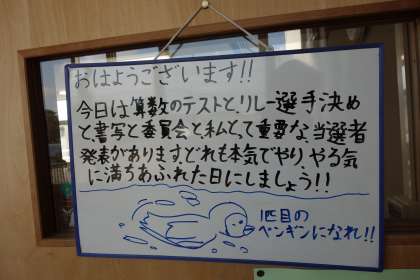 おはようございます!!
今日は算数のテストと、リレー選手決め
と、書写と委員会と私にとって重要な、当選者
発表があります、どれも本気でやり、やる気
に満ちあふれた日にしましょう!!
1匹目の
ペンギンになれ!!